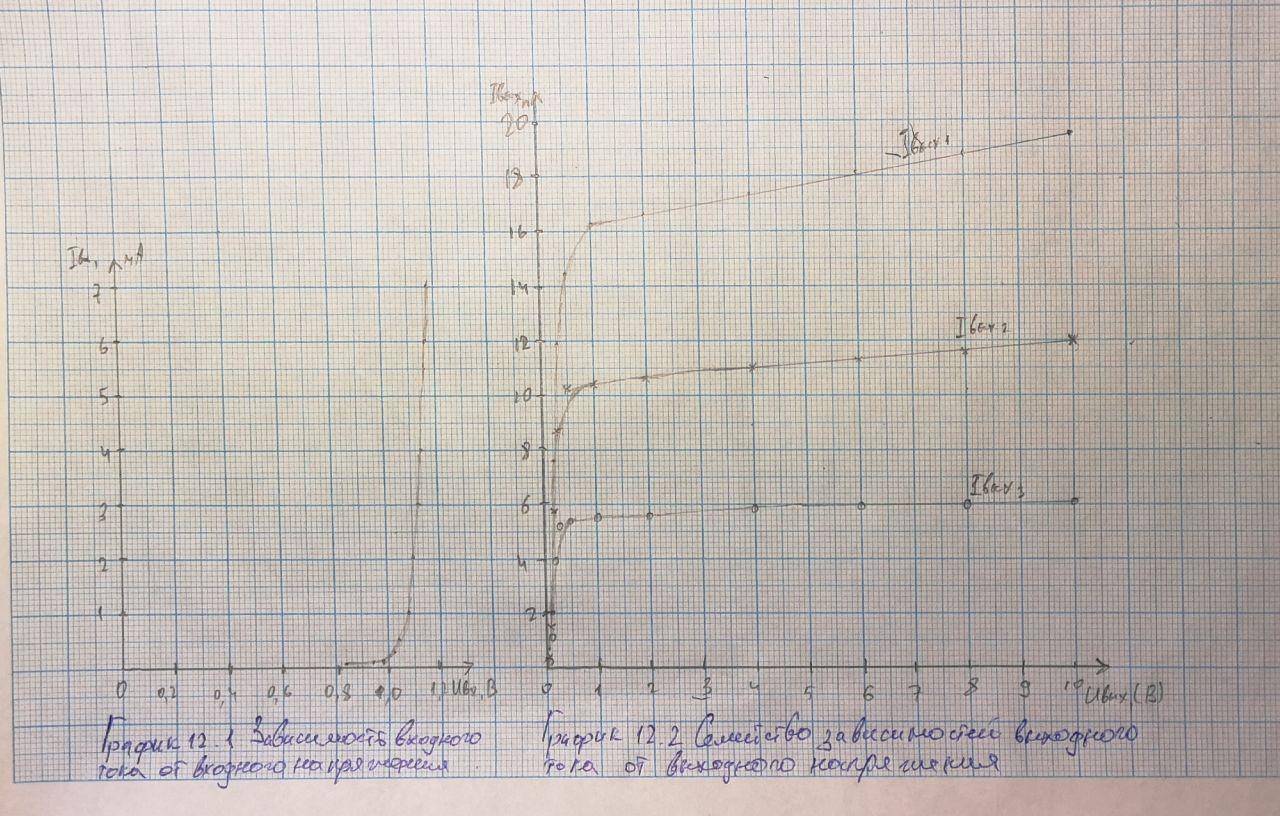 Iвх, мА
7
6
5
4
3
2
1
0 0,2 0,4 0,6 0,8 1,0 1,2 Uвх, В
График 12.1 Зависимость входного
тока от входного напряжения
Iвых,
20
18
16
14
12
10
8
6
4
2
Iвых1
Iвых2
Iвых3
0 1 2 3 4 5 6 7 8 9 10 Uвых, (В)
График 12.2 Семейство зависимостей выходного
тока от выходного напряжения